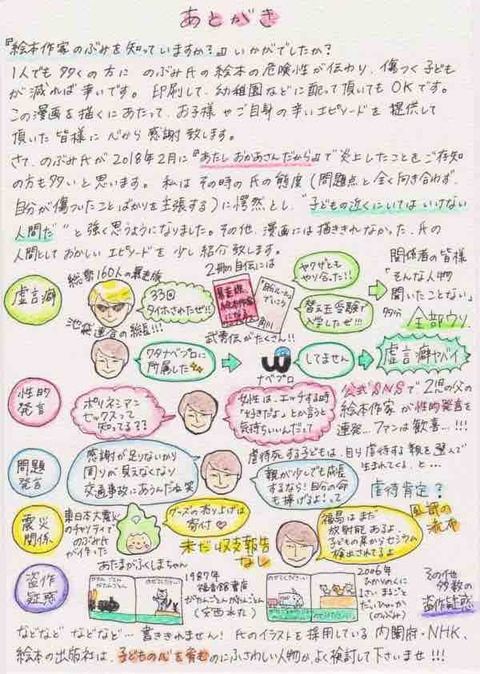 あとがき
『絵本作家のぶみを知っていますか?』いかがでしたか?
1人でも多くの方に のぶみ氏の絵本の危険性が伝わり、傷つく子ども
が減れば幸いです。印刷して、幼稚園などに配って頂いてもOKです。
この漫画を描くにあたって、お子様やご自身の辛いエピソードを提供して
頂いた皆様に心から感謝致します。
さて、のぶみ氏が2018年2月に『あたし おかあさんだから』で炎上したことをご存知
の方も多いと思います。私はその時の氏の態度(問題点と全く向き合わず、
自分が傷ついたことばかりを主張する)に愕然とし、"子どもの近くにしてはいけない
人間だ"と強く思うようになりました。その他、漫画には描ききれなかった、氏の
人間としておかしいエピソードを少し紹介致します。
虚言癖
総勢160人の暴走族
池袋連合の総長!!!
33回
タイホされたぜ!!
2冊の自伝には
武勇伝がたくさん!!
ヤクザとも
やり合った!!
替え玉受験で
入学したぜ!!!
関係者の皆様
「そんな人物
聞いたことない」
多分
全部ウソ
ワタナベプロに
所属した
ナベプロ
してません
虚言癖ヤバイ
性的
発言
ポリネシアン
セックスって
知ってる??
女性は、エッチする時
「好きだよ」とか言うと
気持ちいいんだって
公式SNSで2児の父の
絵本作家が性的発言を
連発…ファンは歓喜…!!!
問題
発言
感謝が足りないから
周りが見えなくなり
交通事故にあうんだよ笑
虐待死する子どもは、自ら虐待する親を選んで
生まれてくる、と…
親が少しでも成長
するなら!自分の命
も捧げるよ!って
虐待肯定?
震災
関係
東日本大震災
のチャリティで
のぶみ氏
が作った
あたまがふくしまちゃん
グッズの売り上げは
寄付♡
未だ収支報告
なし
福島はまだ
放射能あるよ。
子どもの尿からセシウム
検出されてるよ
風評の
流布
盗作
疑惑
1987年
福音館書店
がたんごとんがたんごとん
(安西水丸)
2006年
ひかりのくに
(のぶみ)
その他
多数の
盗作疑惑
などなど などなど…書ききれません!氏のイラストを採用している内閣府・NHK、
絵本の出版社は、子どもの心を育むのにふさわしい人物か、よく検討して下さいませ!!!